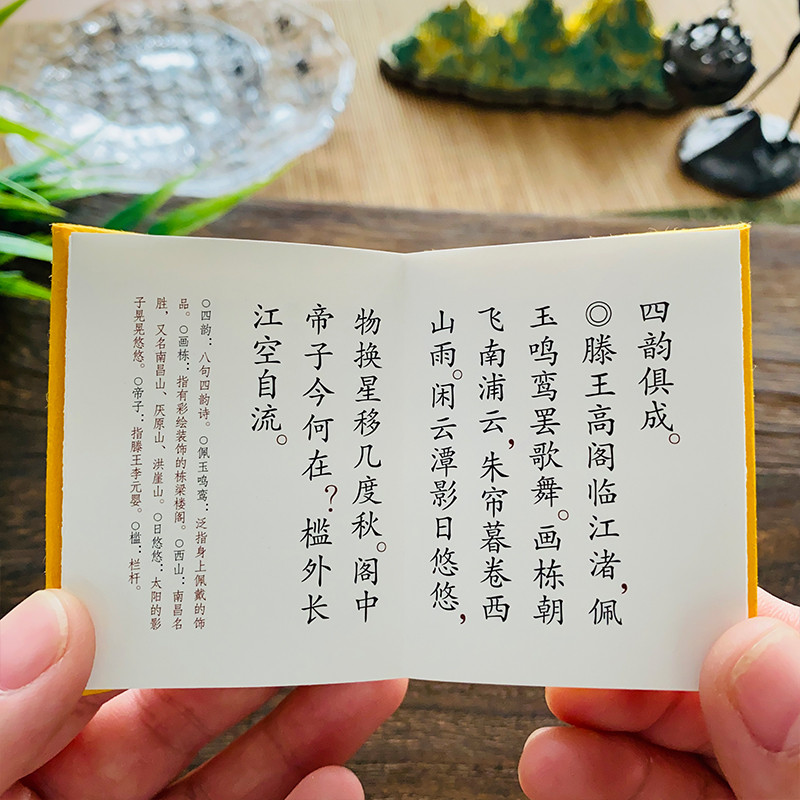 四韵俱成。
◎滕王高阁临江渚，佩
玉鸣鸾罢歌舞。画栋朝
飞南浦云，朱帘暮卷西
山雨。闲云潭影日悠悠，
物换星移几度秋。阁中
帝子今何在？槛外长
江空自流。
○四韵：八句四韵诗。○佩玉鸣鸾：泛指身上佩戴的饰
品。○画栋：指有彩绘装饰的栋梁楼阁。○西山：南昌名
胜，又名南昌山、厌原山、洪崖山。○日悠悠：太阳的影
子晃晃悠悠。○帝子：指滕王李元婴。○槛：栏杆。